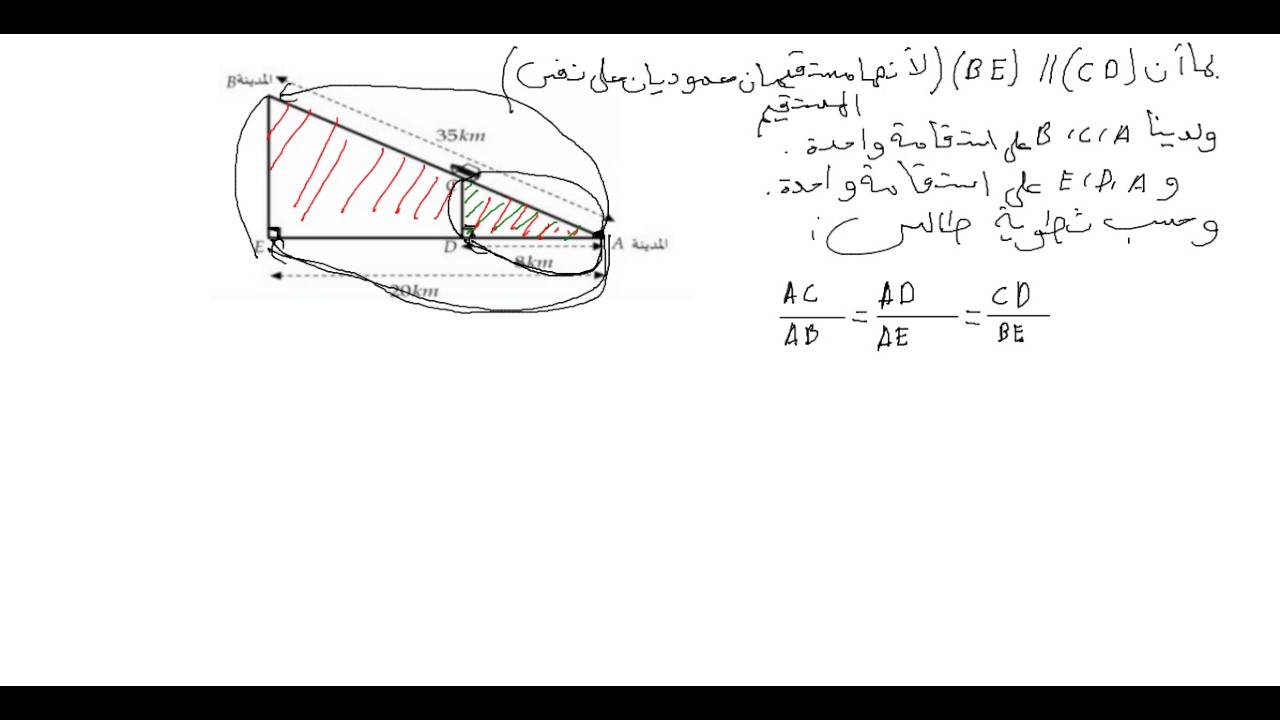 بما أن (CD) // (BE) (لأنهما مستقيمان عموديان على نفس
المستقيم)
ولدينا A، C، B على استقامة واحدة.
و A، D، E على استقامة واحدة.
وحسب نظرية طالس:
AC/AB = AD/AE = CD/BE
B المدينة
35km
C
E
D
A المدينة
8km
20km